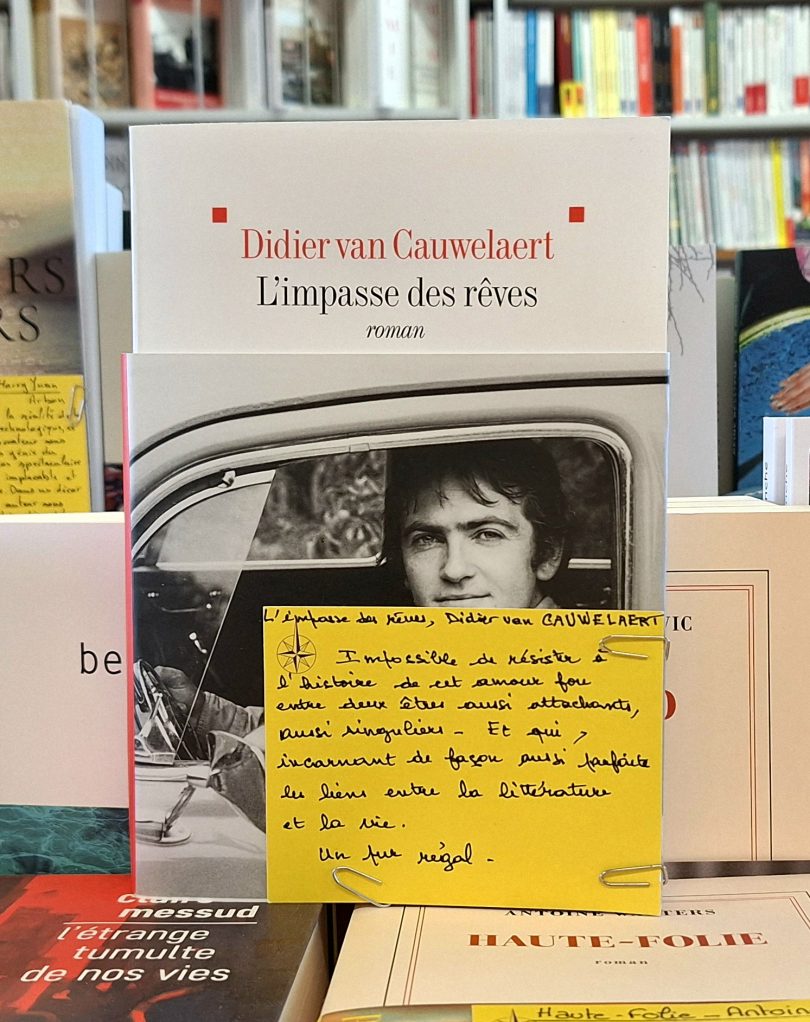 Didier van Cauwelaert
L'impasse des rêves
roman
L'impasse des rêves, Didier van CAUWELAERT
Impossible de résister à
l'histoire de cet amour fou
entre deux êtres aussi attachants,
aussi singuliers - Et qui,
incarnant de façon aussi parfaite
les liens entre la littérature
et la vie.
Un pur régal -
RS
RS
Harry Yuan
la réalité de
technologique, et
nous
génie du
spectaculaire
implacable et
Dans un décor
auteur nous
be
VIC
O
claire
messud
l'étrange
tumulte
de nos vies
ANTOINE
HAUTE-FOLIE
roman
Haute-Folie - Antoin